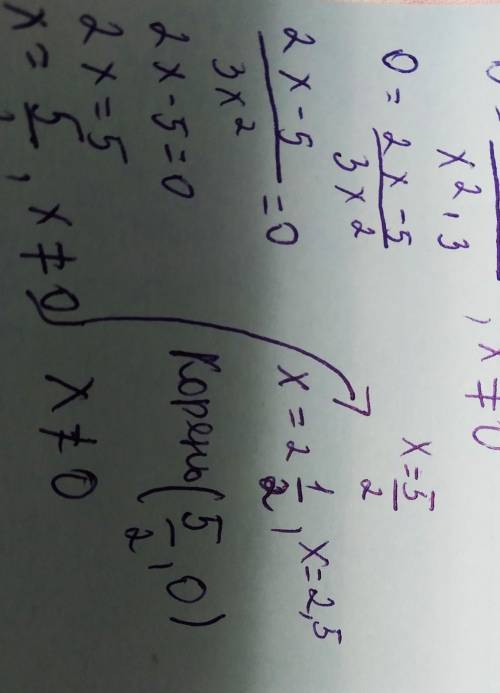 x² · 3 , x ≠ 0
0 = (2x - 5)/(3x²)
(2x - 5)/(3x²) = 0
2x - 5 = 0
2x = 5
x = 5/2, x ≠ 0
x = 5/2
x = 2 1/2, x = 2,5
Корень (5/2, 0)
x ≠ 0